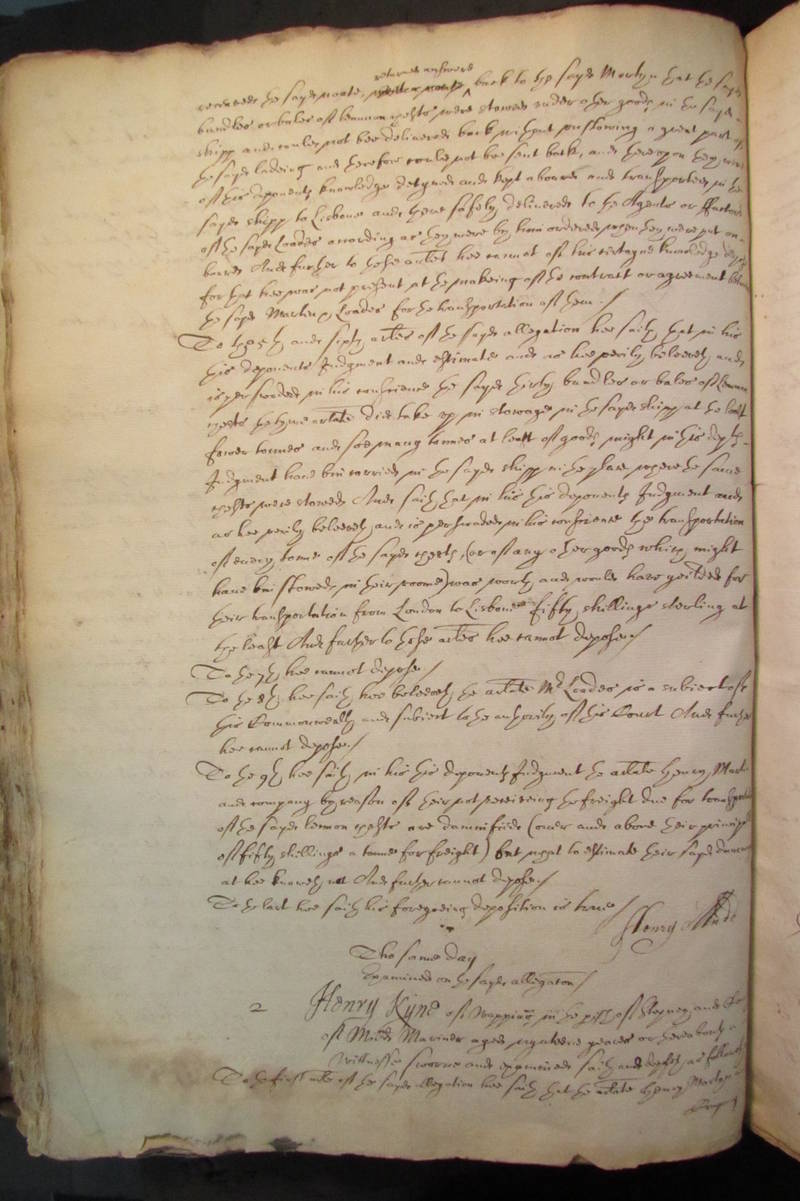 received the sayd noate, returned answere back to the sayd Martyn that the sayd
bundles or bales of lemmon chests were stowed under other goods in the sayd
shipp and could not bee delivered back without unstowing a great part of
the sayd ladeing and therefore could not bee sent back, and thereupon they were
of this deponents knowledge deteyned and kept aboard and transported in the
sayd shipp to Lisbone and there safely delivered to the Agents or ffactors
of the sayd Loades according as they were by him ordered when they were put on
board And further to these articles hee cannot of his certayne knowledge depose
for that hee was not present at the makeing of the contract or agreement betweene
the sayd Martin, Loades for the transportation of them./
To the 5th and sixth articles of the sayd allegation hee saith that in his
this deponents Judgment and estimate and as hee verily beleeveth and
is perswaded in his conscience the sayd thirty bundles or bales of Lemon
chests the tyme articulate did take up in stowage in the sayd shipp at the least
fower tonnes and soe many tonnes at least of goods might in this deponents
Judgment have bin carried in the sayd shipp in the place where the same
chests were stowed And saith that in his this deponents Judgment and
as hee verily beleeveth and is perswaded in his conscience the transportation
of every tonne of the sayd chests, (or of any other goods which might
have bin stowed in their roome) was worth and would have yeilded for
their transportation from London to Lisbone fifty shillings sterling at
the least And further to these articles hee cannot depose./
To the 7th hee cannot depose./
To the 8th hee saith hee beleeveth the articulate Mr Loades is a subiect of
this Commonwealth and subiect to the authority of this Court And further
hee cannot depose./
To the 9th hee saith in his this deponents Judgment the articulate Henry Martin
and company by reason of their not receiving the freight due for transportation
of the sayd lemon chests are damnified (over and above their principall
of fifty shillings a tonne for freight) but what to estimate their sayd damage
at hee knoweth not And further cannot depose./
To the last hee saith his foregoeing deposition is true./
Henry
The same day
Examined on the sayd allegation./
2 Henry Kyne of Wapping in the parish of Stepney and County
of Midds Mariner aged nyneteene yeares or thereabouts a
wittnesse sworne and examined saith and deposeth as followeth
To the first article of the sayd allegation hee saith that the articulate Henry Martyn